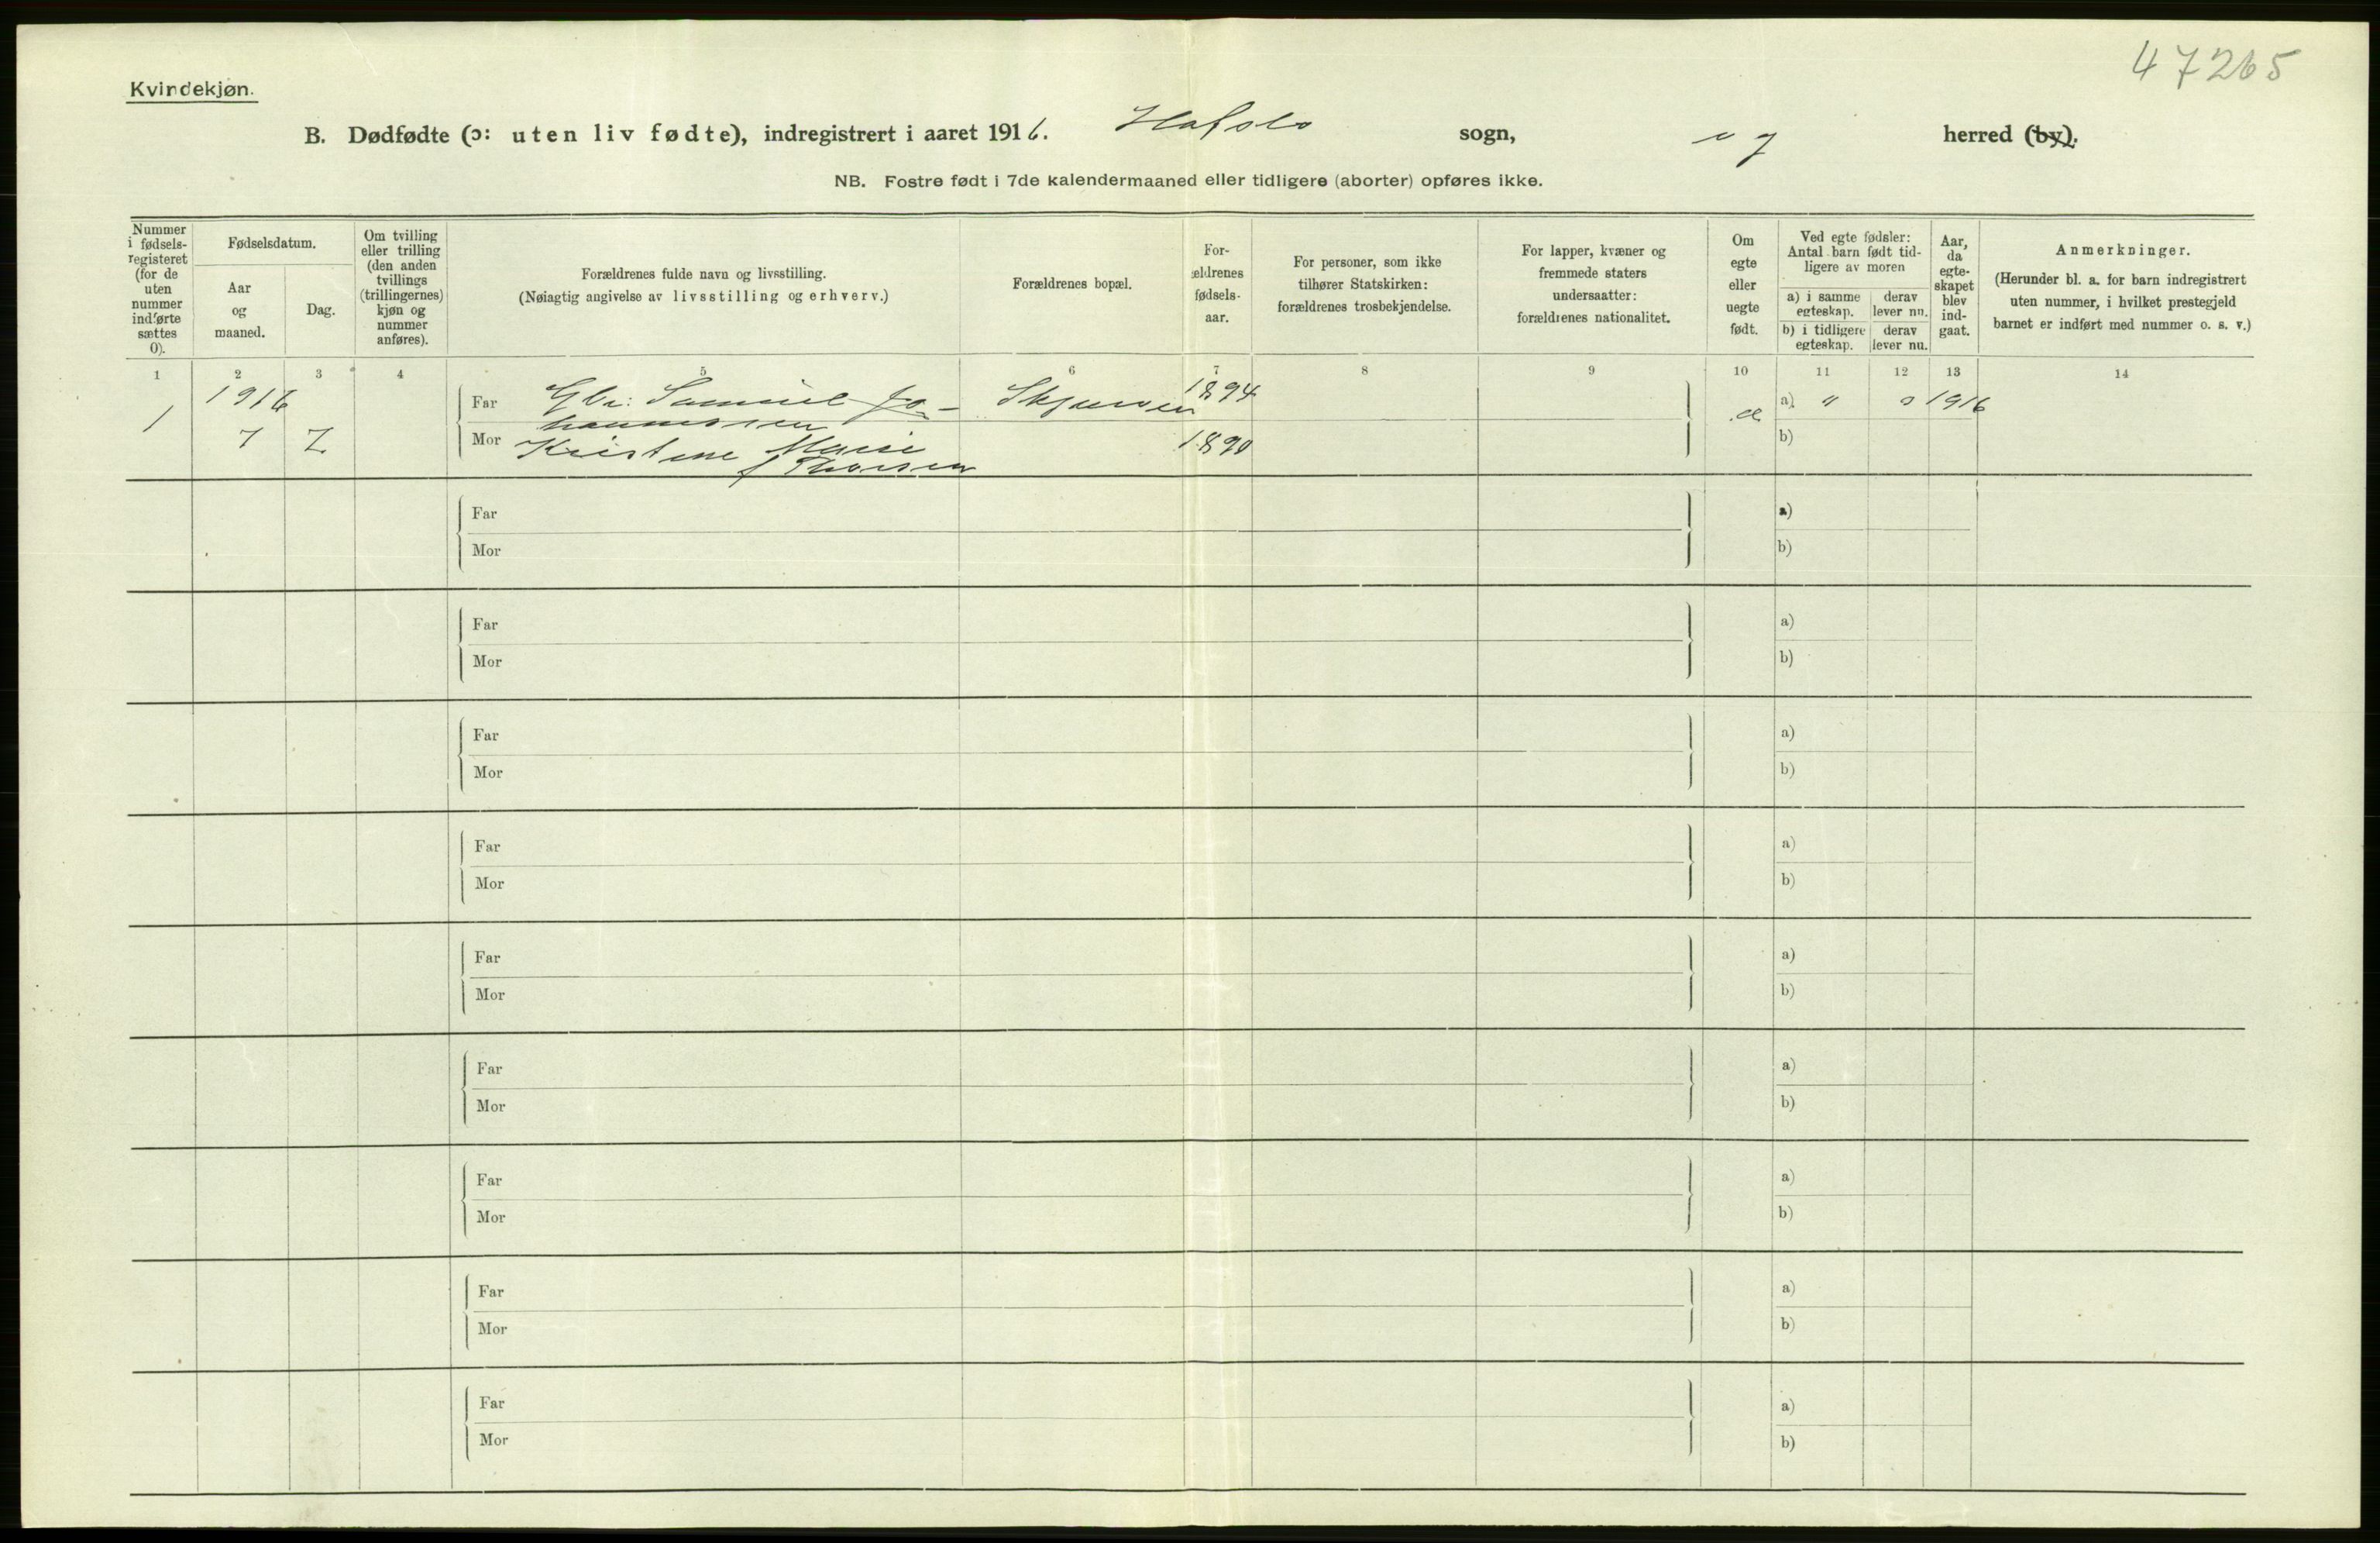 47265
Kvindekjøn.
B. Dødfødte (ɔ: uten liv fødte), indregistrert i aaret 1916. Hafslo sogn, og herred (by).
NB. Fostre født i 7de kalendermaaned eller tidligere (aborter) opføres ikke.
Nummer
i fødsels-
registeret
(for de
uten
nummer
indførte
sættes
0).
Fødselsdatum.
Aar
og
maaned.
Dag.
Om tvilling
eller trilling
(den anden
tvillings
(trillingernes)
kjøn og
nummer
anføres).
Forældrenes fulde navn og livsstilling.
(Nøiagtig angivelse av livsstilling og erhverv.)
Forældrenes bopæl.
For-
ældrenes
fødsels-
aar.
For personer, som ikke
tilhører Statskirken:
forældrenes trosbekjendelse.
For lapper, kvæner og
fremmede staters
undersaatter:
forældrenes nationalitet.
Om
egte
eller
uegte
født.
Ved egte fødsler:
Antal barn født tid-
ligere av moren
a) i samme
egteskap.
derav
lever nu.
b) i tidligere
egteskap.
derav
lever nu.
Aar,
da
egte-
skapet
blev
ind-
gaat.
Anmerkninger.
(Herunder bl. a. for barn indregistrert
uten nummer, i hvilket prestegjeld
barnet er indført med nummer o. s. v.)
1 2 3 4 5 6 7 8 9 10 11 12 13 14
1916 Far Gbr. Samuel Jo- 1894 a) " 0 1916
1 hannessen
7 7 Mor Kristine Marie 1890 b)
f Thorsen
Far a)
Mor b)
Far a)
Mor b)
Far a)
Mor b)
Far a)
Mor b)
Far a)
Mor b)
Far a)
Mor b)
Far a)
Mor b)
Far a)
Mor b)
Far a)
Mor b)